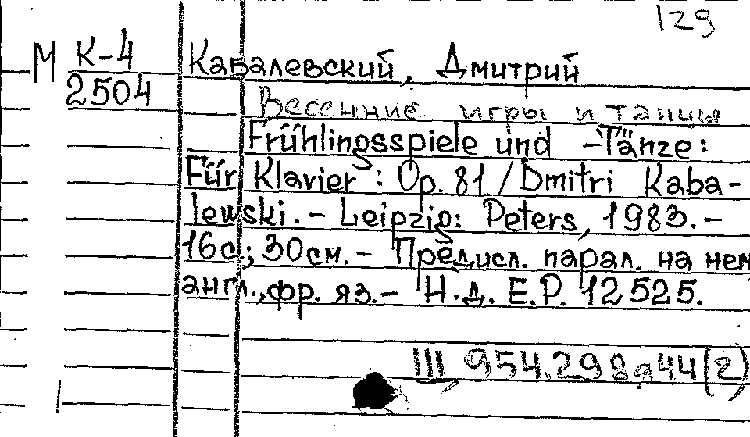 129
М К-4
2504
Кабалевский, Дмитрий
Весенние игры и танцы
Frühlingsspiele und -Tänze:
Für Klavier : Op. 81 / Dmitri Kaba-
lewski. - Leipzig: Peters, 1983. -
16с.; 30см. - Предисл. парал. на нем
англ., фр. яз. - Н.д. E.P. 12525.
III 954.298д44(2)